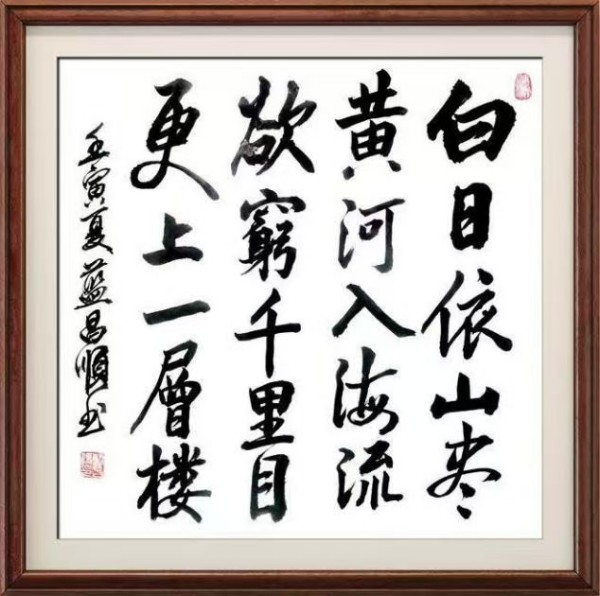 白日依山尽
黄河入海流
欲窮千里目
更上一層楼
壬寅夏蓝昌順书